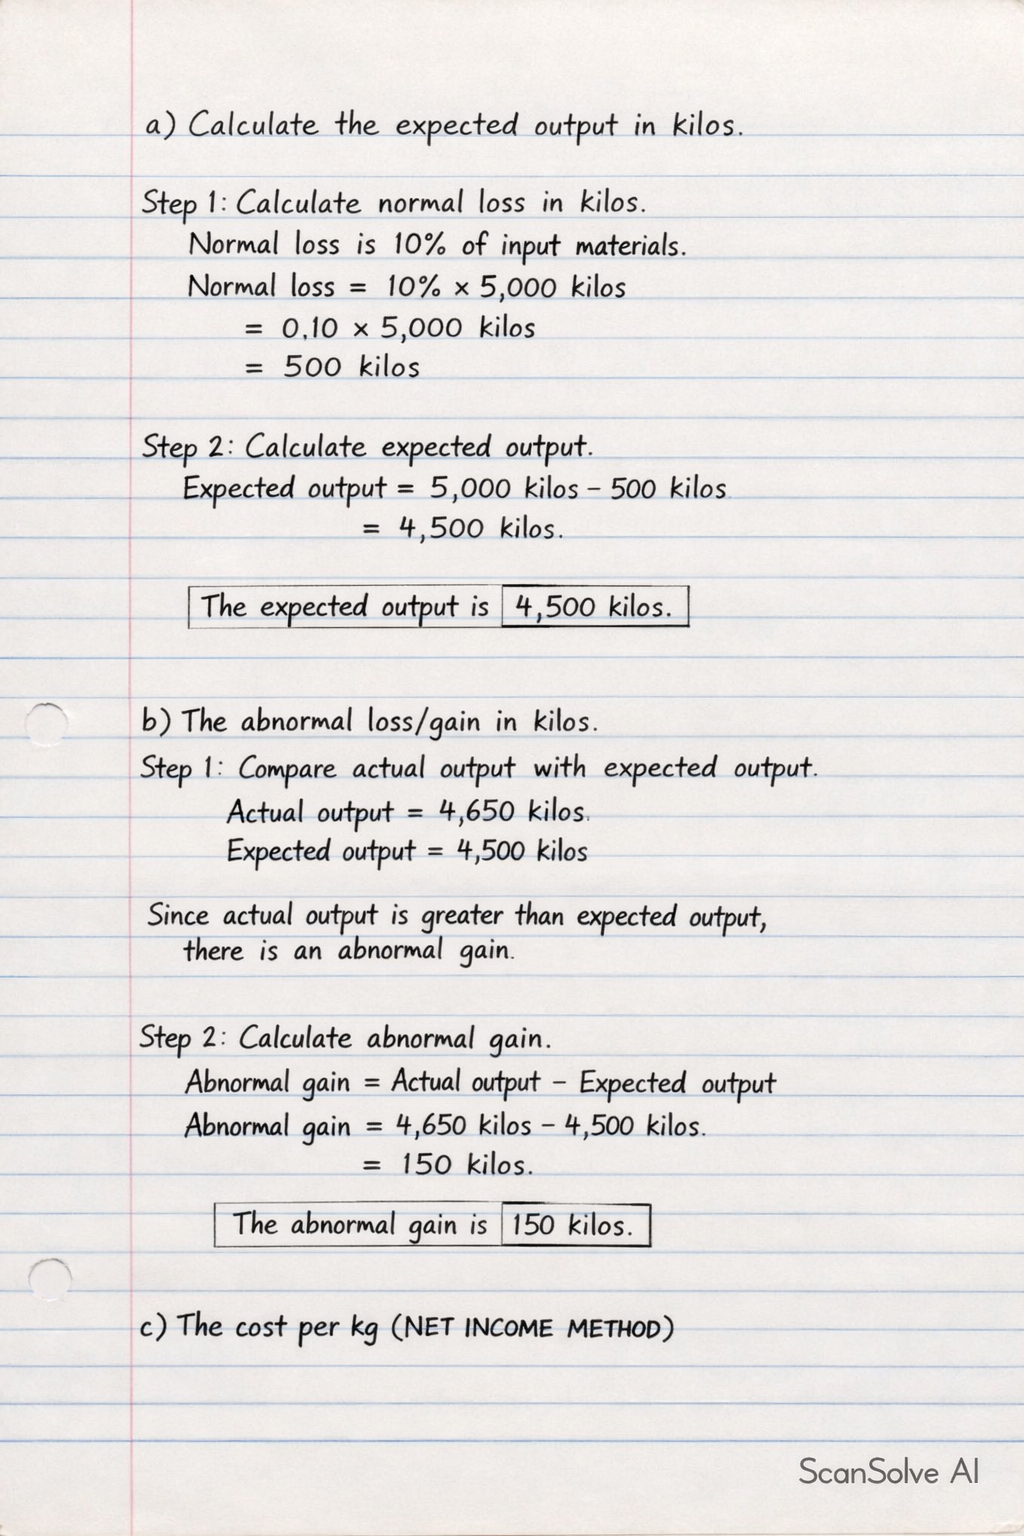 a) Calculate the expected output in kilos.
Step 1: Calculate normal loss in kilos.
Normal loss is 10% of input materials.
Normal loss = 10% × 5,000 kilos
= 0.10 × 5,000 kilos
= 500 kilos
Step 2: Calculate expected output.
Expected output = 5,000 kilos – 500 kilos
= 4,500 kilos.
The expected output is 4,500 kilos.
b) The abnormal loss/gain in kilos.
Step 1: Compare actual output with expected output.
Actual output = 4,650 kilos.
Expected output = 4,500 kilos
Since actual output is greater than expected output,
there is an abnormal gain.
Step 2: Calculate abnormal gain.
Abnormal gain = Actual output – Expected output
Abnormal gain = 4,650 kilos – 4,500 kilos.
= 150 kilos.
The abnormal gain is 150 kilos.
c) The cost per kg (NET INCOME METHOD)
ScanSolve AI